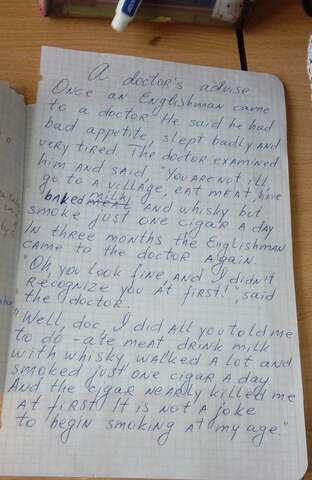 A doctor's advise
Once an Englishman came
to a doctor. He said he had
bad appetite, slept badly and
very tired. The doctor examined
him and said: "You are not ill,
go to a village, eat meat, have
baked milk and whisky but
smoke just one cigar a day
In three months the Englishman
came to the doctor again.
"Oh, you look fine, and I didn't
recognize you at first!", said
the doctor.
"Well, doc, I did all you told me
to do - ate meat, drink milk
with whisky, walked a lot and
smoked just one cigar a day
And the cigar nearly killed me
at first. It is not a joke
to begin smoking at my age."